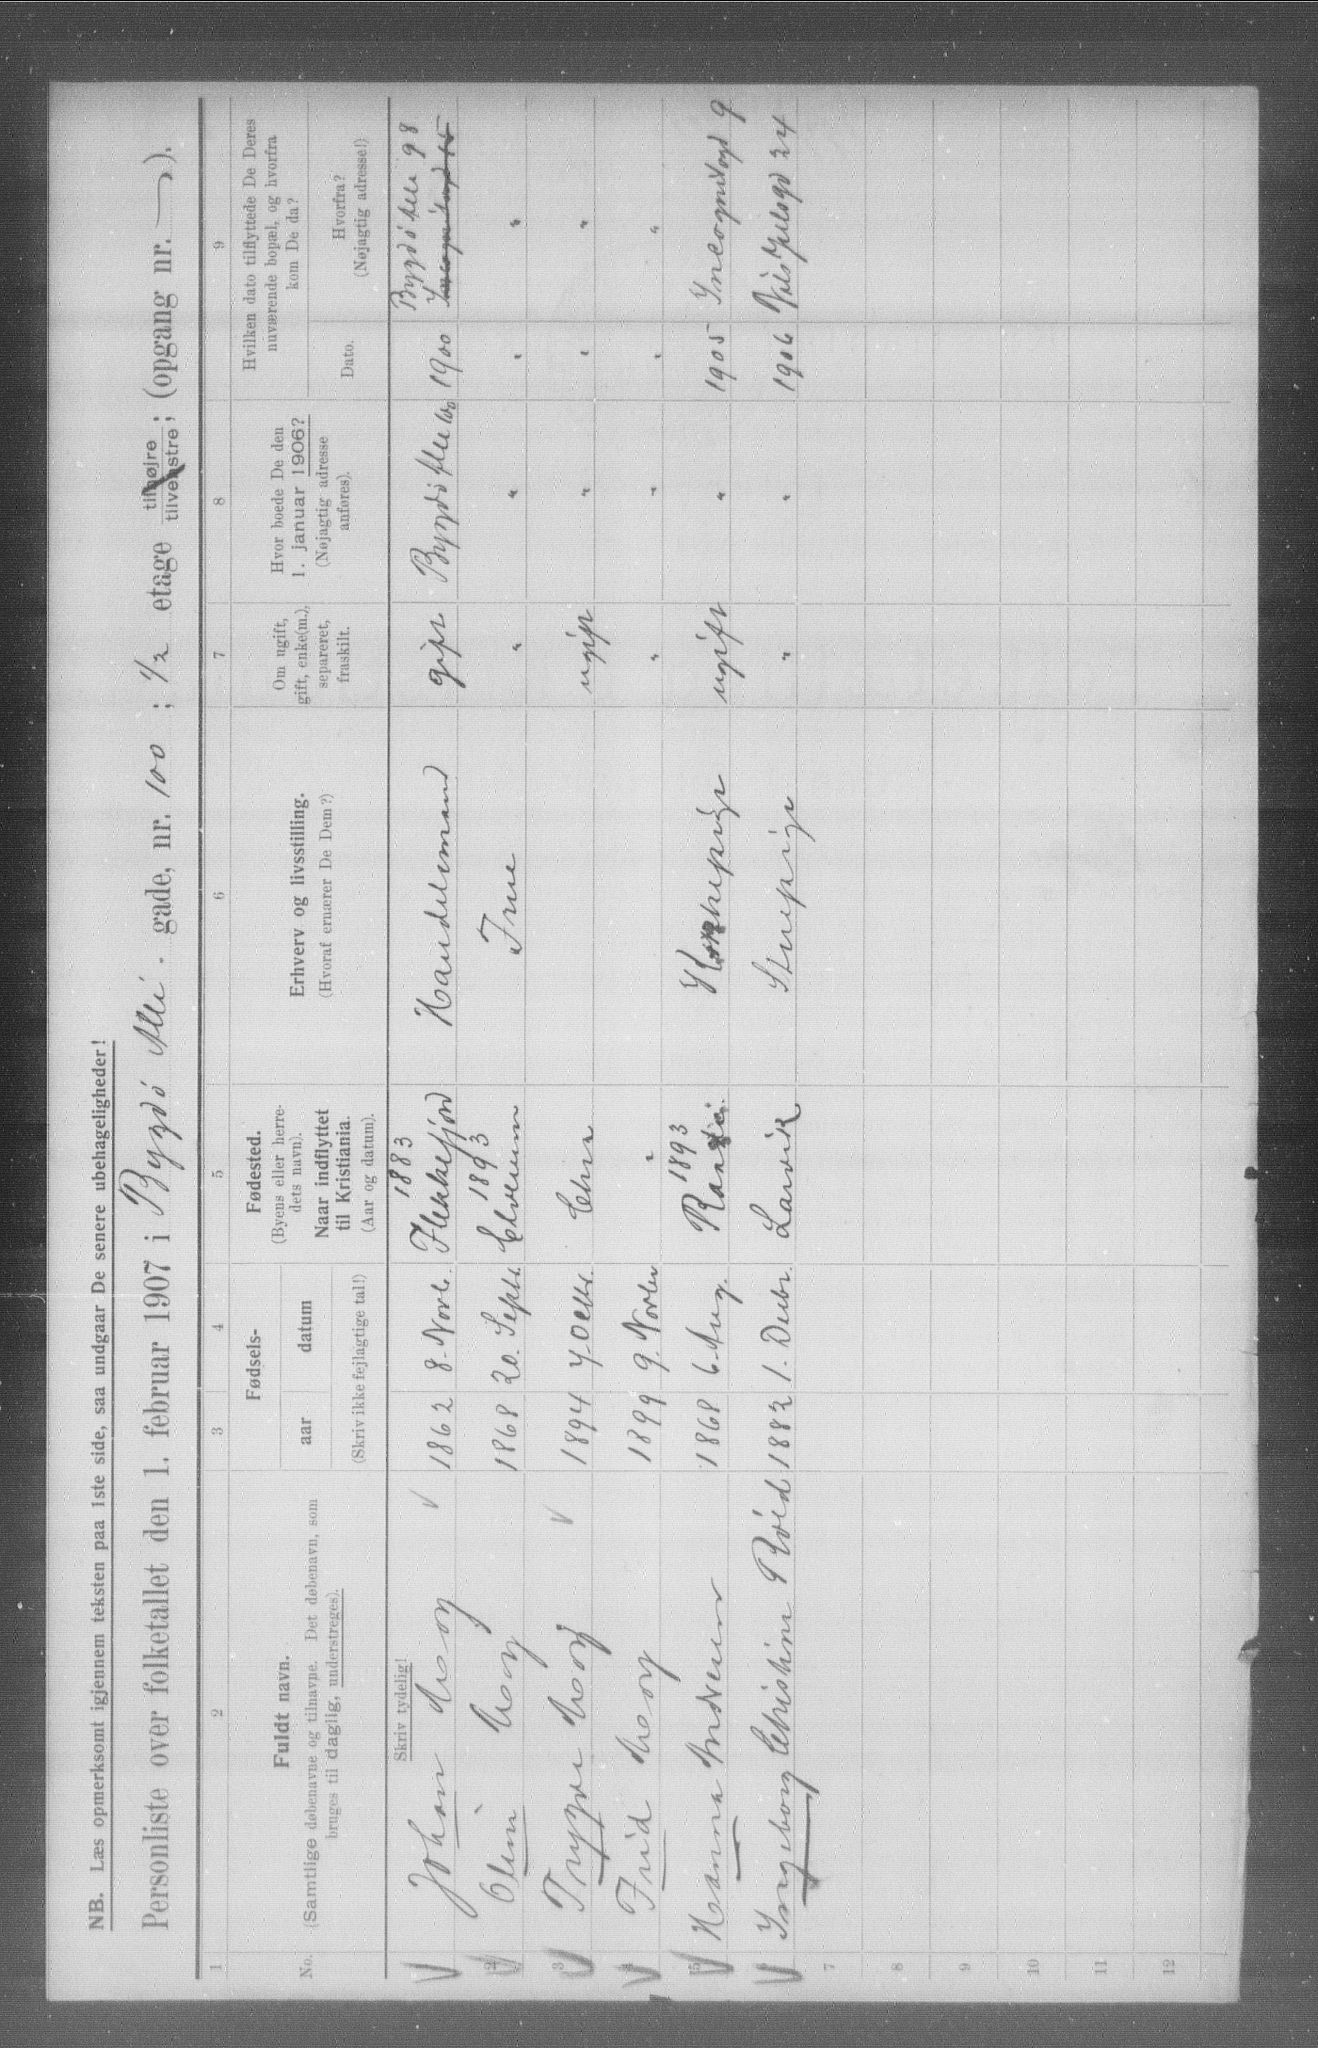 NB. Læs opmerksomt igjennem teksten paa 1ste side, saa undgaar De senere ubehageligheder!
Personliste over folketallet den 1. februar 1907 i Bygdö Allé. gade, nr. 100 ; 1/2 etage tilhøjre tilvenstre; (opgang nr. —).
1 2 3 4 5 6 7 8 9
No.
Fuldt navn.
(Samtlige døbenavne og tilnavne. Det døbenavn, som
bruges til daglig, understreges).
Fødsels-
aar datum
(Skriv ikke fejlagtige tal!)
Fødested.
(Byens eller herre-
dets navn).
Naar indflyttet
til Kristiania.
(Aar og datum).
Erhverv og livsstilling.
(Hvoraf ernærer De Dem?)
Om ugift,
gift, enke(m.),
separeret,
fraskilt.
Hvor boede De den
1. januar 1906?
(Nøjagtig adresse
anføres).
Hvilken dato tilflyttede De Deres
nuværende bopæl, og hvorfra
kom De da?
Dato.
Hvorfra?
(Nøjagtig adresse!)
Skriv tydelig!
1883 Bygdö Alle 98
Johan 1862 8. Novb. Flekkefjord Handelsmand gift Bygdö Alle 100 1900
1893
2 1868 20. Septb. Elverum Frue " " " "
3 Trygve 1894 7 Octb. Chra ugift " " "
4 1899 9. Novbr " " " " "
1893
5 Hanna Andersen 1868 6. Aug. Kokkepige ugift " 1905 Incognitogd 9
Ingeborg Christine 1882 1. Decbr. Larvik Stuepige " " 1906 24
7
8
9
10
11
12